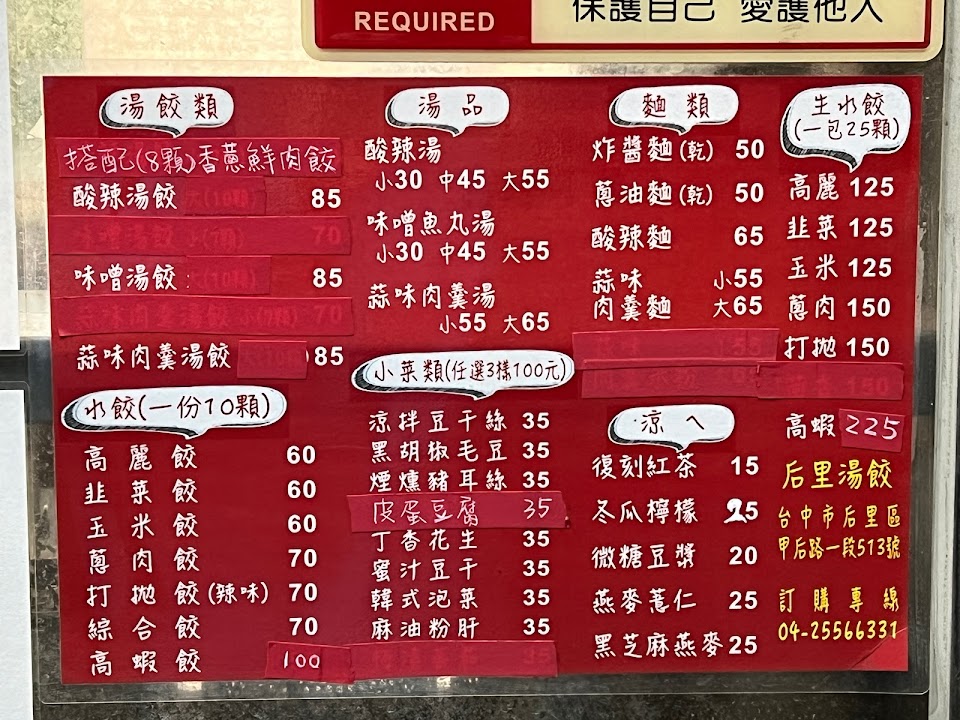 REQUIRED
保護自己 愛護他人
湯餃類
搭配(8顆)香蔥鮮肉餃
酸辣湯餃 85
70
味噌湯餃 85
70
蒜味肉羹湯餃 85
水餃(一份10顆)
高麗餃 60
韭菜餃 60
玉米餃 60
蔥肉餃 70
打拋餃(辣味) 70
綜合餃 70
高蝦餃 100
湯品
酸辣湯
小30 中45 大55
味噌魚丸湯
小30 中45 大55
蒜味肉羹湯
小55 大65
小菜類(任選3樣100元)
涼拌豆干絲 35
黑胡椒毛豆 35
煙燻豬耳絲 35
皮蛋豆腐 35
丁香花生 35
蜜汁豆干 35
韓式泡菜 35
麻油粉肝 35
麵類
炸醬麵(乾) 50
蔥油麵(乾) 50
酸辣麵 65
蒜味 小55
肉羹麵 大65
涼ㄟ
復刻紅茶 15
冬瓜檸檬 25
微糖豆漿 20
燕麥薏仁 25
黑芝麻燕麥 25
生水餃
(一包25顆)
高麗 125
韭菜 125
玉米 125
蔥肉 150
打拋 150
高蝦 225
后里湯餃
台中市后里區
甲后路一段513號
訂購專線
04-25566331